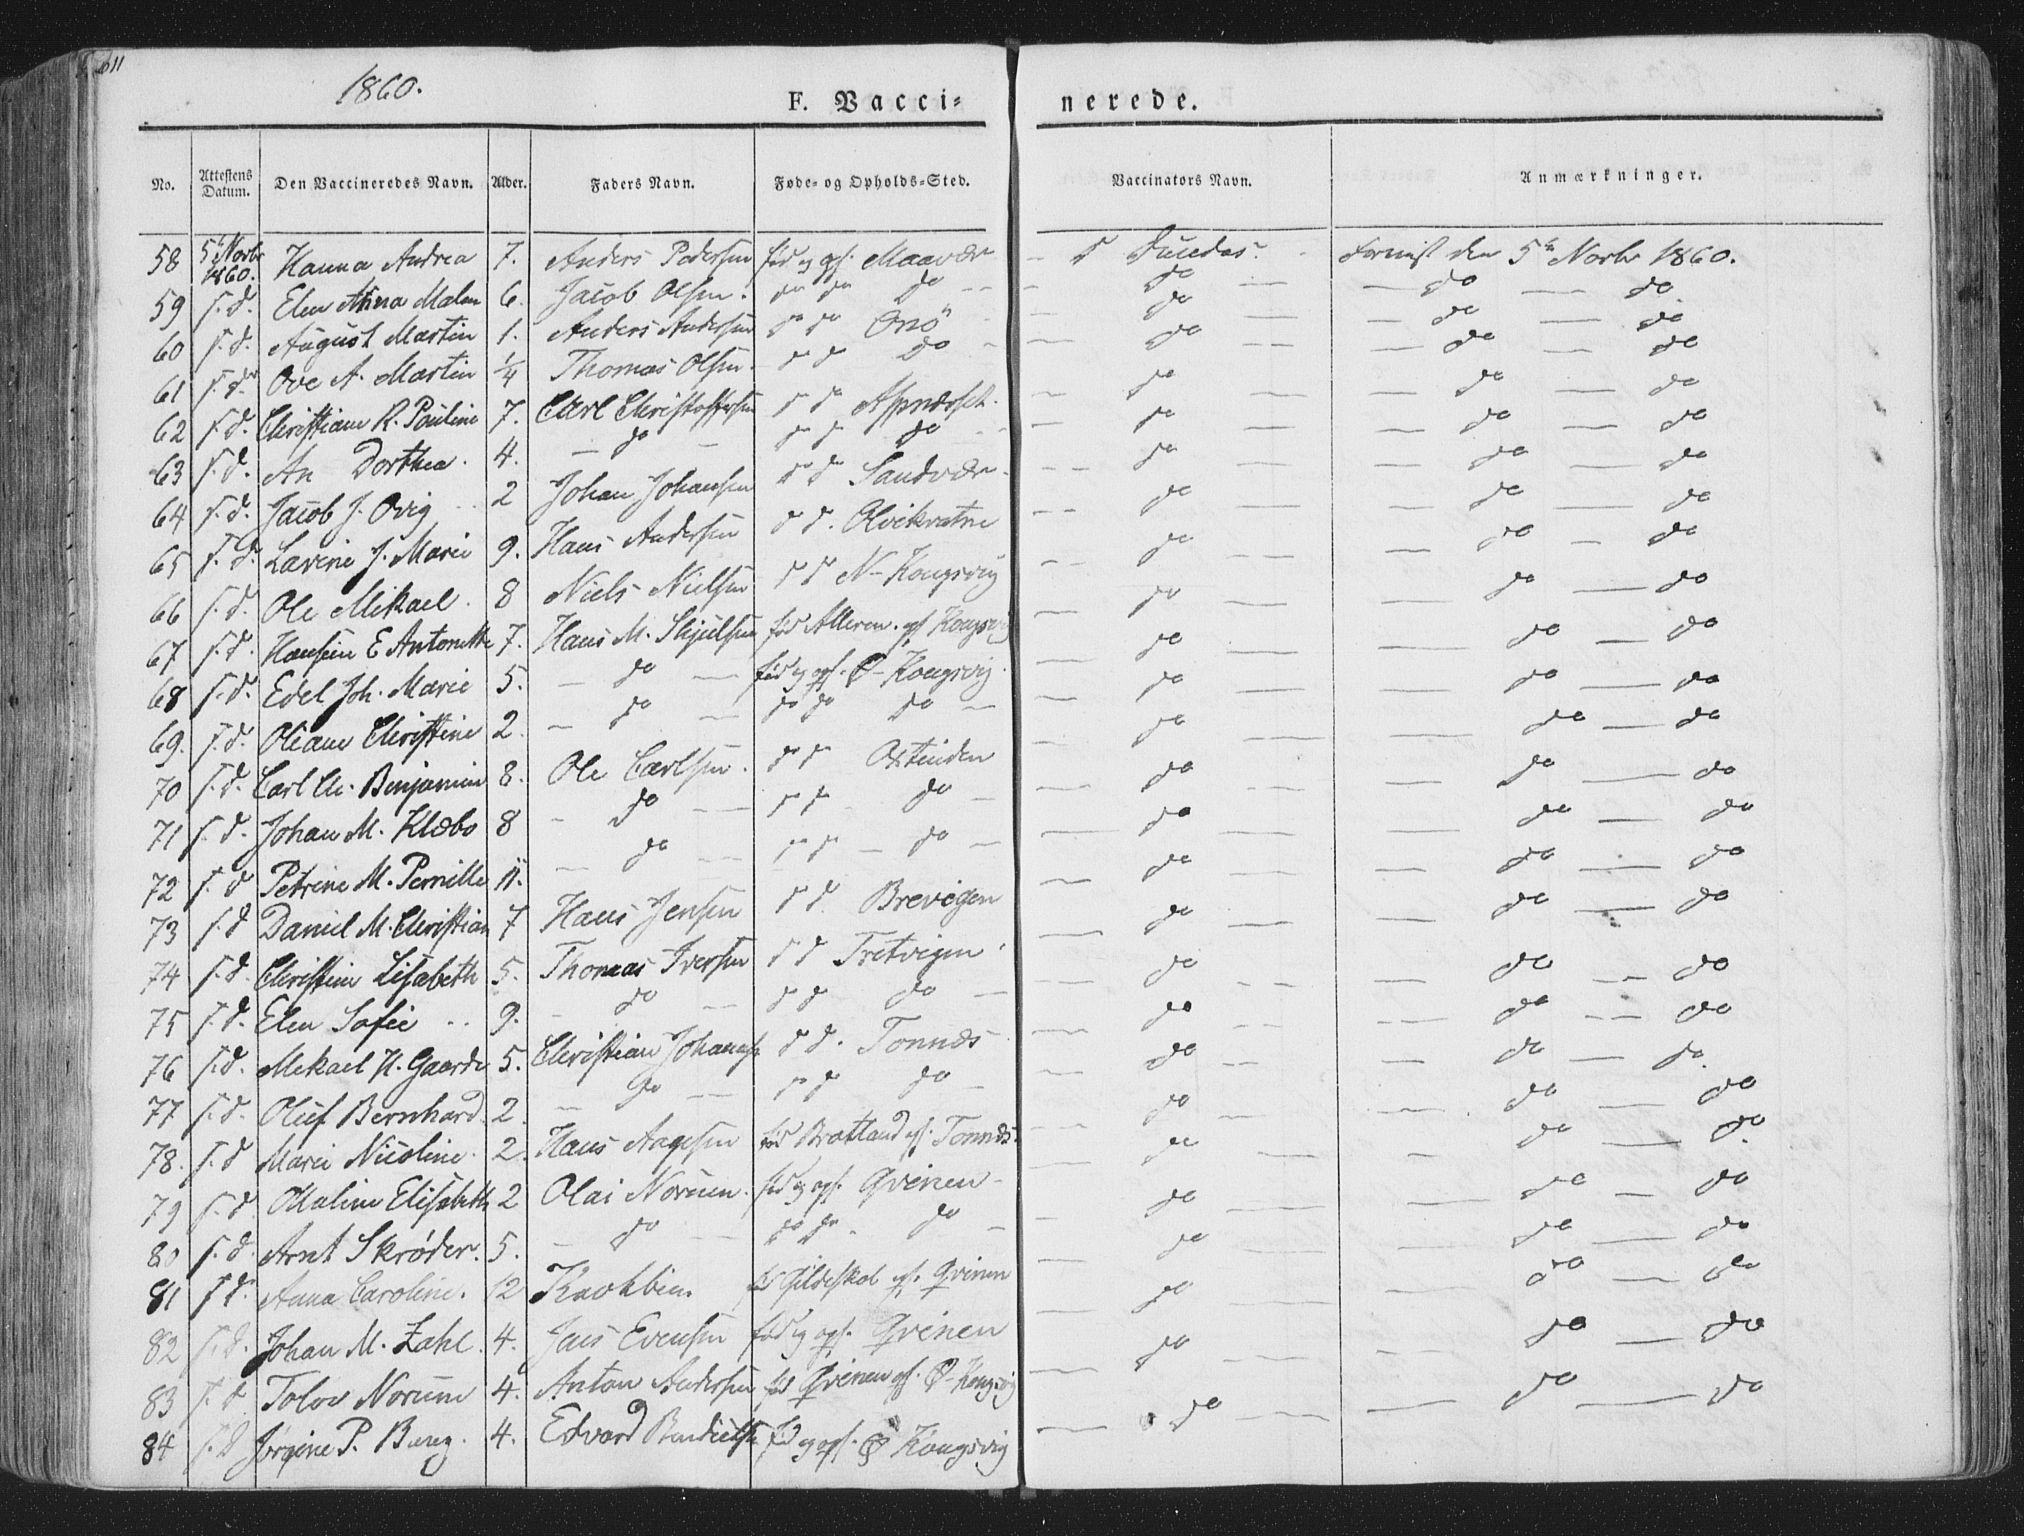 611
1860.
F. Vacci-
nerede.
No. Attestens Datum. Den Vaccineredes Navn. Alder. Faders Navn. Føde- og Opholds-Sted. Vaccinators Navn. Anmærkninger.
58 5t Novbr 1860. Hanna Andrea 7. Anders Pedersen fød og opf. Maavær den 5te Novbr 1860.
59 s. d. Elen Anna Malen 6. Jacob Olsen. do do do do do do
60 s. d. August Martin 1. Anders Andersen do do Onö do do do
61 s. d. Ove A. Martin 1/4 Thomas Olsen. do do do do do do
62 s. d. Christiane R. Pauline 7. Carl Christoffersen d d do do do
63 s. d. An Dorthea. 4. do do do do do do do
64 s. d. Jacob J. Ovig 2 Johan Johansen d d Sandvær do do do
65 s. d. Lavine J. Marie 9. Hans Andersen d d. Olvikvatne do do do
66 s. d. Ole Mikael. 8 Niels Nielsen d d N-Kongsvig do do do
67 s. d. Hansine E Antonette 7. Hans M. Skjelsen fød Alleren. opf Kongsvig do do do
68 s. d. Edel Joh. Marie 5. do fød og opf. Ø-Kongsvig. do do do
69. s. d. Oliane Christine 2. do do do do do do do
70 s. d. Carl Chr. Benjamin 8. Ole Carlsen. do do Oxtinden do do do
71 s. d. Johan M. Klæbo 8 do do do do do do do
72 s. d Petrine M. Pernille 11. do do do do do do do
73 s. d Daniel M. Christian 7 Hans Jensen d d. Brevigen do do do
74 s. d. Christine Lisabeth 5. Thomas Iversen d d Tretvigen do do do
75 s. d. Elen Sofie 9. do do do do do do do
76 s. d. Mekael H. Gaarde 5. Christian Johans d d. Tonnæs do do do
77 s. d. Oluf Bernhard. 2. do do do do do do do
78. s. d Marie Nicoline. 2. Hans Aagesen fød Bratland opf. Tonnæs. do do do
79 s. d Otaline Elisabeth 2 Olai Norum. fød og opf. Qvinen do do do
80 s. d. Arnt Skrøder. 5. do do do do do do do
81 s. d. Anna Caroline. 12 fød Gildeskol opf. Qvinen do do do
82 s. d. Johan M. Zahl. 4. Jens Evensen fød og opf. Qvinen do do do
83 s. d. Tolov Norum 4. Anton Andersen fød Qvinen opf. Ø-Kongsvig do do do
84 s. d Jørgine P. 4. Edvard fød og opf. Ø Kongsvig